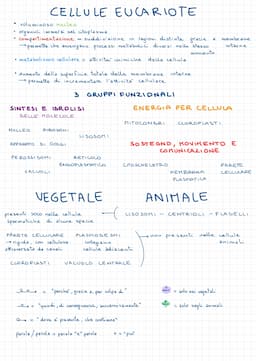 CELLULE EUCARIOTE
• voluminoso nucleo
• organuli immersi nel citoplasma
• compartimentazione = suddivisione in regioni distinte, grazie a membrane interne
→ permette che avvengano processi metabolici diversi nello stesso momento
• metabolismo cellulare = attività chimiche della cellula
• Aumento della superficie totale delle membrane interne
→ permette di incrementare l'attività cellulare.
3 GRUPPI FUNZIONALI
SINTESI E IDROLISI
DELLE MOLECOLE
NUCLEO RIBOSOMI
LISOSOMI
APPARATO DI GOLGI
PEROSSISOMI RETICOLO
ENDOPLASMATICO
VACUOLI
ENERGIA PER CELLULA
MITOCONDRI CLOROPLASTI
SOSTEGNO, MOVIMENTO E
COMUNICAZIONE
CITOSCHELETRO PARETE
CELLULARE
MEMBRANA
PLASMATICA
VEGETALE
presenti solo nelle cellule
spermatiche di alcune specie
PARETE CELLULARE PLASMODESMI
→ rigida, con cellulosa collegano
attraversata da canali cellule adiacenti
CLOROPLASTI VACUOLO CENTRALE
ANIMALE
LISOSOMI - CENTRIOLI - FLAGELLI
non presenti nelle cellule
animali
= "perché, grazie a, per colpa di"
= "quindi, di conseguenza, successivamente"
= "dove è presente, che contiene"
parola / parola = parola "e" parola
+ = "più"
= solo nei vegetali
= solo negli animali